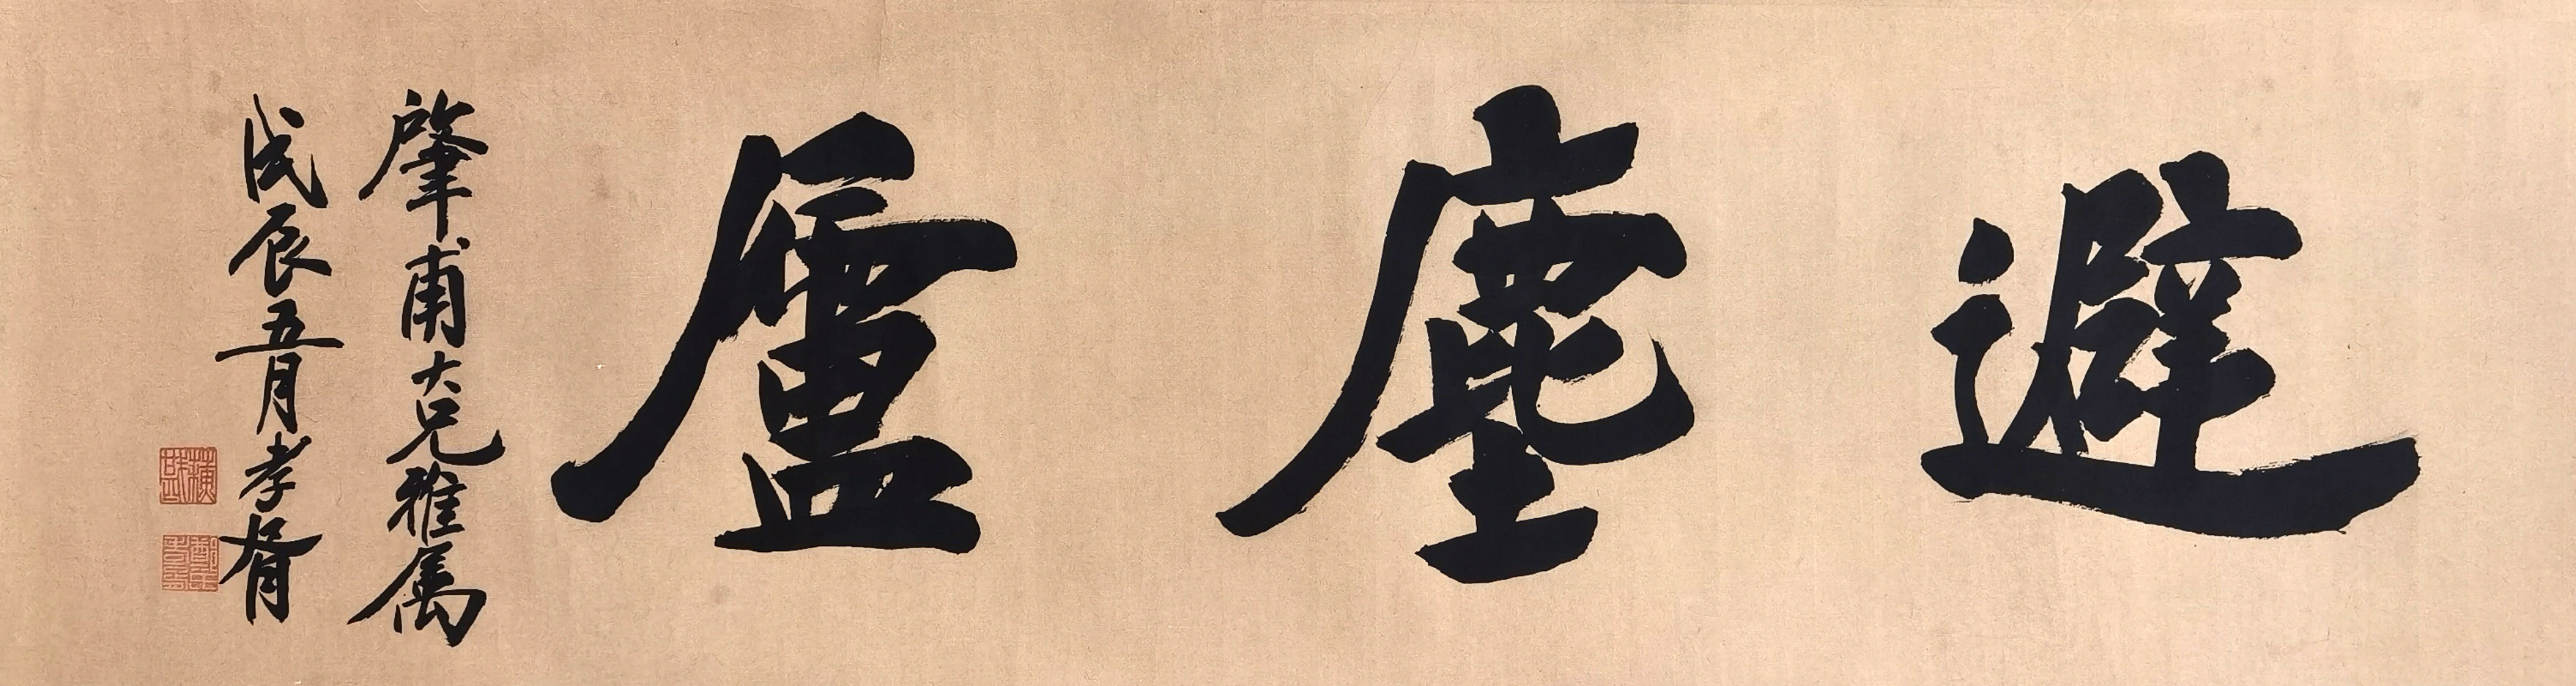 避塵廬
肇甫大兄雅属
戊辰五月孝胥